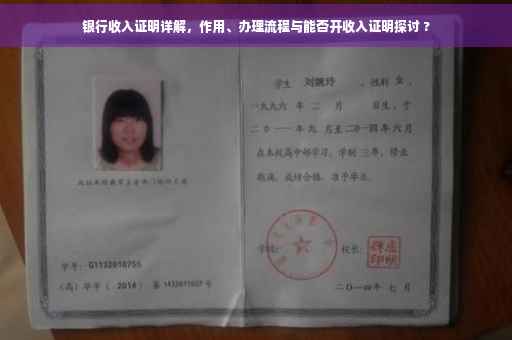 银行收入证明详解，作用、办理流程与能否开收入证明探讨？
学生 刘婉玲 ，性别 女 ，
一九九六 年 二 月 日生，于
二〇一一 年 九 月至 二〇一四 年 六 月
在本校高中部学习，学制 三 年，修业
期满，成绩合格，准予毕业。
学号：G1132010755
校长：
(高) 毕字 ( 2014 ) 第 1432011027 号
二〇一四年 七 月